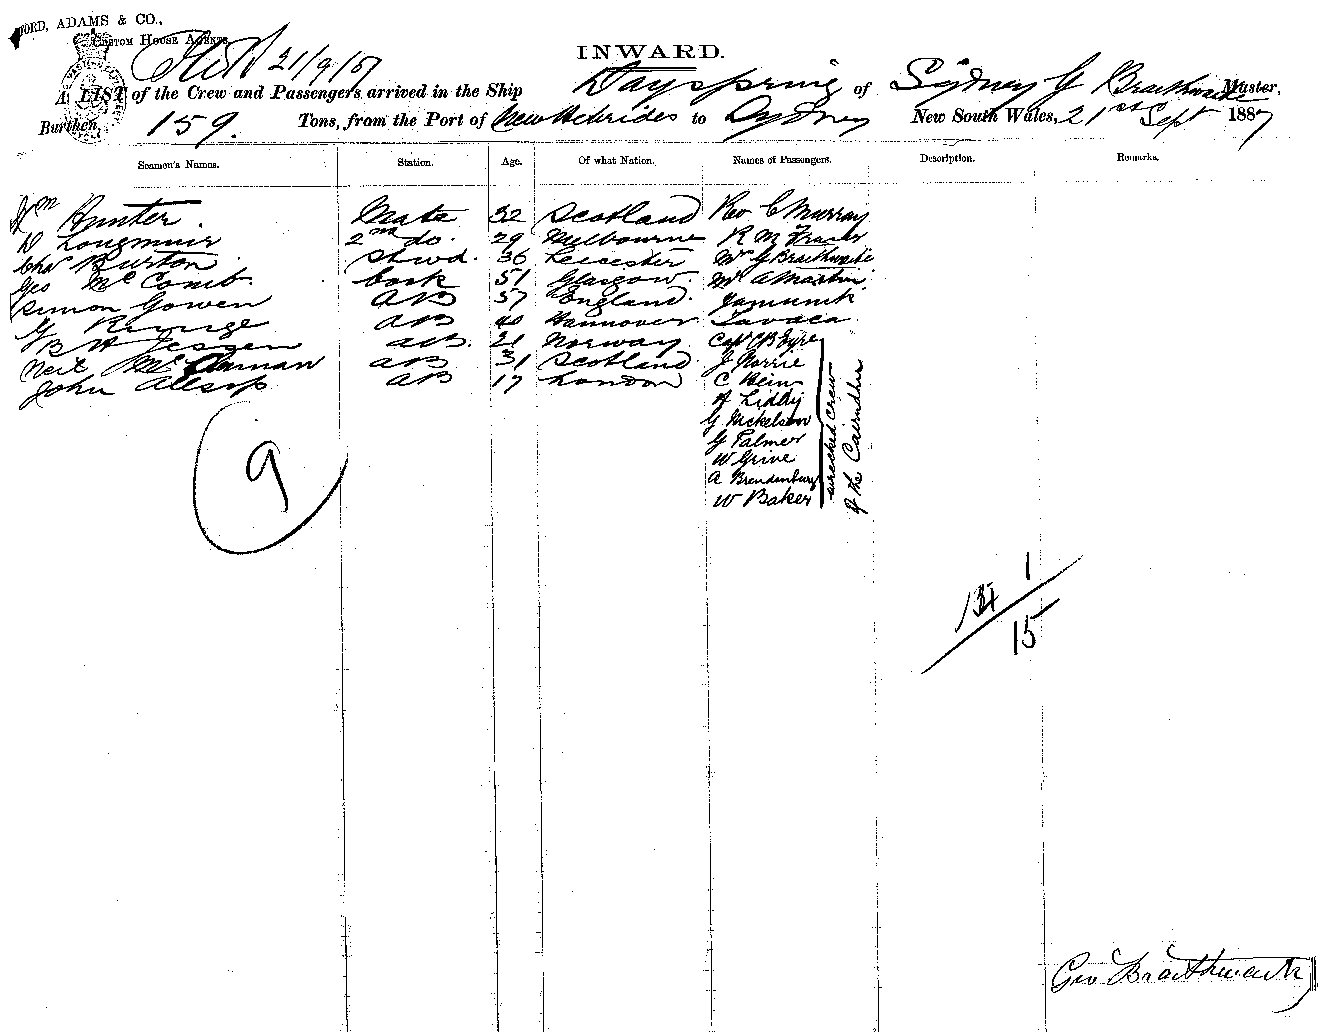 FORD, ADAMS & CO.,
CUSTOM HOUSE AGENTS
21/9/87
INWARD.
A LIST of the Crew and Passengers arrived in the Ship Dayspring of Sydney G Braithwaite Master,
Burthen 159. Tons, from the Port of New Hebrides to Sydney New South Wales, 21st Sept 1887
Seamen's Names. Station. Age. Of what Nation. Names of Passengers. Description. Remarks.
Wm Hunter. Mate 32 Scotland Rev C Murray
D Longmuir 2nd do. 29 Melbourne R M Fraser
Chas Burton Stwd. 36 Leicester Mr G Braithwaite
Geo McComb. Cook 51 Glasgow. Mr A Martin
Simon Gowen AB 57 England.
G AB 40 Hannover
B H Jessen AB. 21 Norway Capt C B Eyre
Neil AB 31 Scotland J Norrie
John Allsop AB 17 London C Hein
Liddy
G Nickelson
G Palmer
W Grive
A Brandenburg
W Baker
wrecked crew
of the
9
1
134
15
Geo Braithwaite